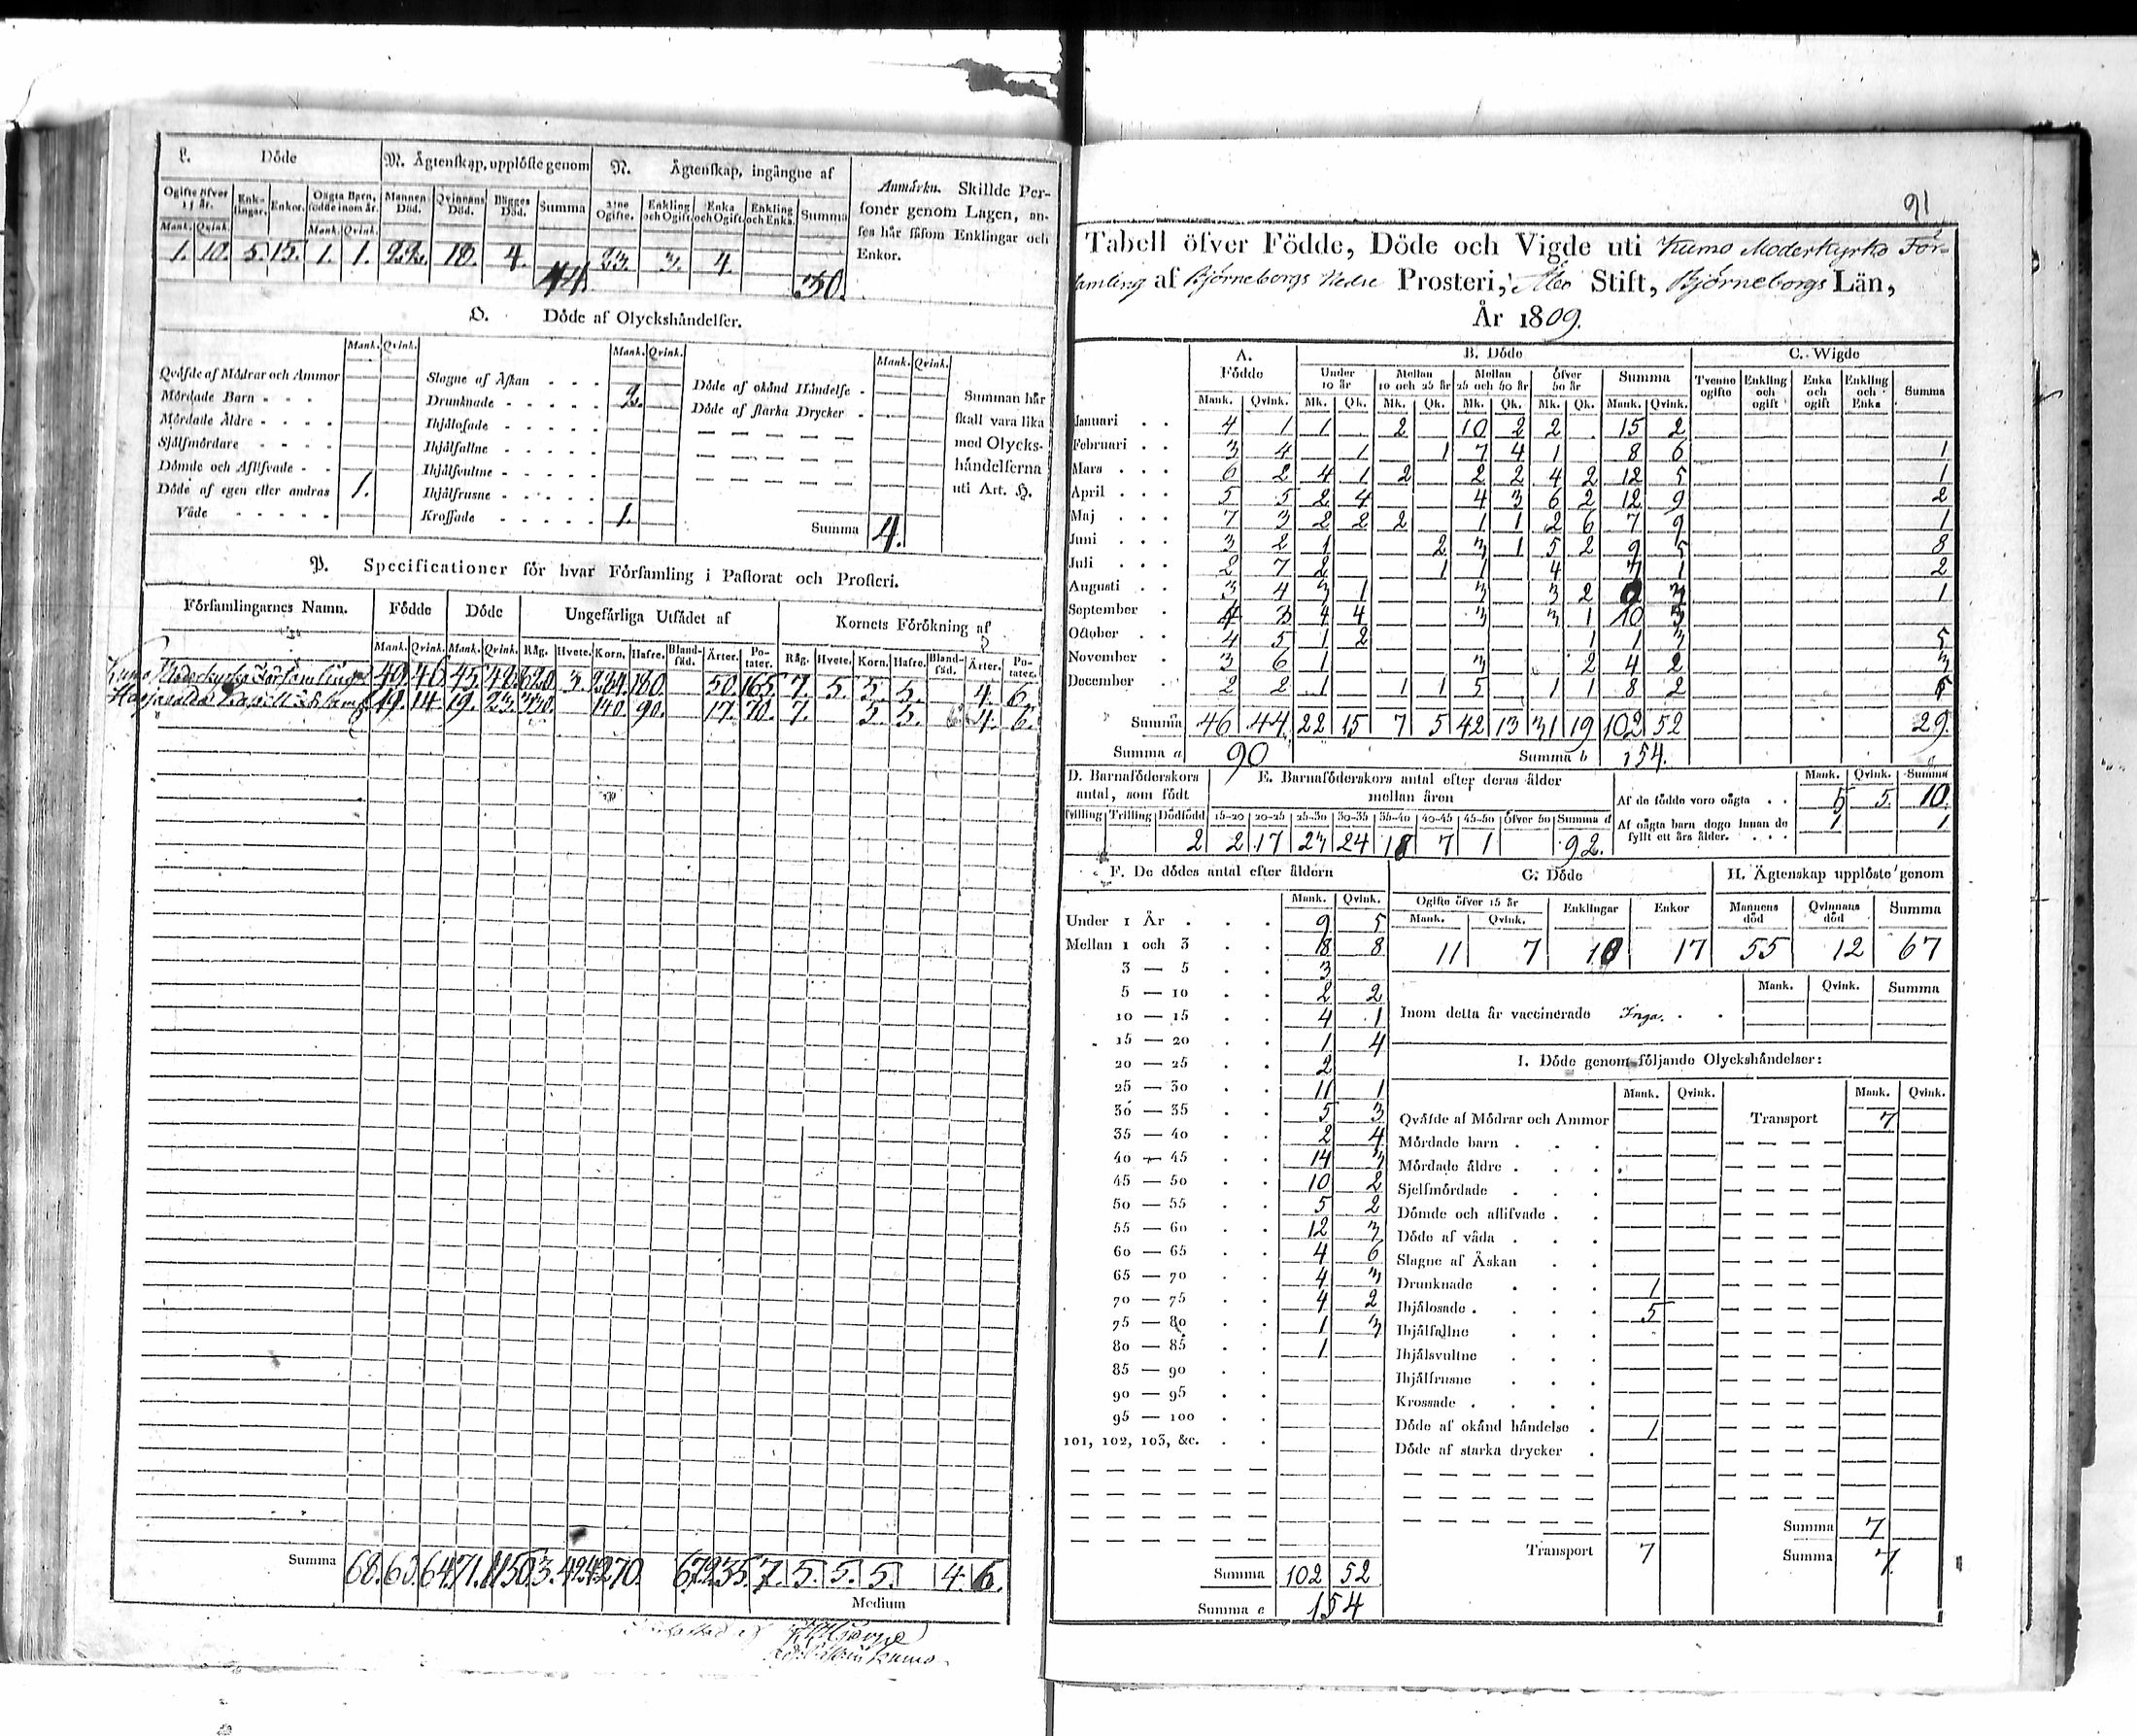 L. Döde
M. Ägtenskap, upplöste genom
N. Ägtenskap, ingångne af
Anmärkn. Skillde Personer
genom Lagen, anses
här såsom Enklingar och
Enkor.
Ogifte öfver 15 år. Enklingar. Enkor. Oägta Barn, födde inom år. Mannens Död. Qvinnans Död. Bägges Död. Summa 2:ne Ogifte. Enkling och Ogift. Enka och Ogift. Enkling och Enka. Summa
Mank. Qvink. Mank. Qvink.
1. 10. 5. 15. 1. 1. 22. 18. 4. 44. 23. 3. 4. 30.
O. Döde af Olyckshändelser.
Mank. Qvink. Mank. Qvink. Mank. Qvink.
Qväfde af Mödrar och Ammor
Mördade Barn
Mördade Äldre
Sjålfmördare
Dömde och Aflifvade
Döde af egen eller andras
Våde 1.
Slagne af Åskan
Drunknade 2.
Ihjälosade
Ihjälfallne
Ihjälsvultne
Ihjälfrusne
Krossade 1.
Döde af okänd Händelse
Döde af starka Drycker
Summa 4.
Summan här
skall vara lika
med Olyckshändelserna
uti Art. H.
P. Specificationer för hvar Församling i Pastorat och Prosteri.
Församlingarnes Namn. Födde Döde Ungefärliga Utsädet af Kornets Förökning af
Mank. Qvink. Mank. Qvink. Råg. Hvete. Korn. Hafre. Blandsäd. Ärter. Potater. Råg. Hvete. Korn. Hafre. Blandsäd. Ärter. Potater.
Kumo Moderkyrko Församling 49. 46. 45. 48. 820. 3. 284. 180. 50. 165. 7. 5. 5. 5. 4. 6.
Harjavalda Capell Församl. 19. 14. 19. 23. 330. 140. 90. 17. 70. 7. 5 5. 4. 6.
Summa 68. 60. 64. 71. 1150. 3. 424. 270. 67. 235. 7. 5. 5. 5. 4. 6.
Medium
91
Tabell öfver Födde, Döde och Vigde uti Kumo Moderkyrko För-
samling af Björneborgs Nedre Prosteri, Åbo Stift, Björneborgs Län,
År 1809.
A. Födde B. Döde C. Wigde
Under 10 år Mellan 10 och 25 år Mellan 25 och 50 år Öfver 50 år Summa Tvenne ogifte Enkling och ogift Enka och ogift Enkling och Enka Summa
Mank. Qvink. Mk. Qk. Mk. Qk. Mk. Qk. Mk. Qk. Mank. Qvink.
Januari 4 1 1 2 10 2 2 15 2
Februari 3 4 1 1 7 4 1 8 6 1
Mars 6 2 4 1 2 2 2 4 2 12 5 1
April 5 5 2 4 4 3 6 2 12 9 2
Maj 7 3 2 2 2 1 1 2 6 7 9 1
Juni 3 2 1 2 3 1 5 2 9 5 8
Juli 2 7 2 1 1 4 7 1 2
Augusti 3 4 3 1 3 3 2 9 3 1
September 4 3 4 4 3 3 1 10 5
October 4 5 1 2 1 1 3 5
November 3 6 1 3 2 4 2 3
December 2 2 1 1 1 5 1 1 8 2
Summa 46 44 22 15 7 5 42 13 31 19 102 52 29
Summa a 90 Summa b 154.
D. Barnaföderskors antal, som födt
Tvilling Trilling Dödfödd
2
E. Barnaföderskors antal efter deras ålder mellan åren
15-20 20-25 25-30 30-35 35-40 40-45 45-50 Öfver 50 Summa d
2 17 23 24 18 7 1 92.
Mank. Qvink. Summa
Af de födde voro oägta 5 5. 10.
Af oägta barn dogo innan de fyllt ett års ålder. 1 1
F. De dödes antal efter åldern
Mank. Qvink.
Under 1 År 9 5
Mellan 1 och 3 18 8
3 — 5 3
5 — 10 2 2
10 — 15 4 1
15 — 20 1 4
20 — 25 2
25 — 30 11 1
30 — 35 5 3
35 — 40 2 4
40 — 45 14 3
45 — 50 10 2
50 — 55 5 2
55 — 60 12 3
60 — 65 4 6
65 — 70 4 3
70 — 75 4 2
75 — 80 1 3
80 — 85 1
85 — 90
90 — 95
95 — 100
101, 102, 103, &c.
Summa 102 52
Summa e 154
G. Döde
Ogifte öfver 15 år Enklingar Enkor
Mank. Qvink.
11 7 10 17
H. Ägtenskap upplöste genom
Mannens död Qvinnans död Summa
55 12 67
Mank. Qvink. Summa
Inom detta år vaccinerade Inga.
I. Döde genom följande Olyckshändelser:
Mank. Qvink. Mank. Qvink.
Qväfde af Mödrar och Ammor
Mördade barn
Mördade äldre
Sjelfmördade
Dömde och aflifvade
Döde af våda
Slagne af Åskan
Drunknade 1
Ihjälosade 5
Ihjälfallne
Ihjälsvultne
Ihjälfrusne
Krossade
Döde af okänd händelse 1
Döde af starka drycker
Transport 7
Transport 7
Summa 7
Summa 7.